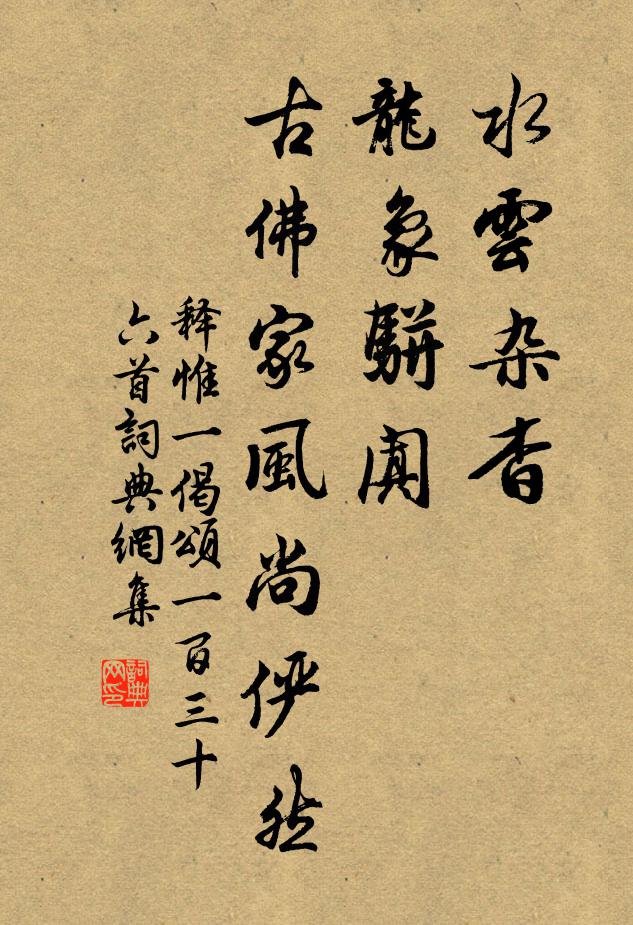 水雲杂杳
龍象駢闐
古佛家風尚俨然
释惟一偈頌一百三十
六首詞典網集
詞典
网印